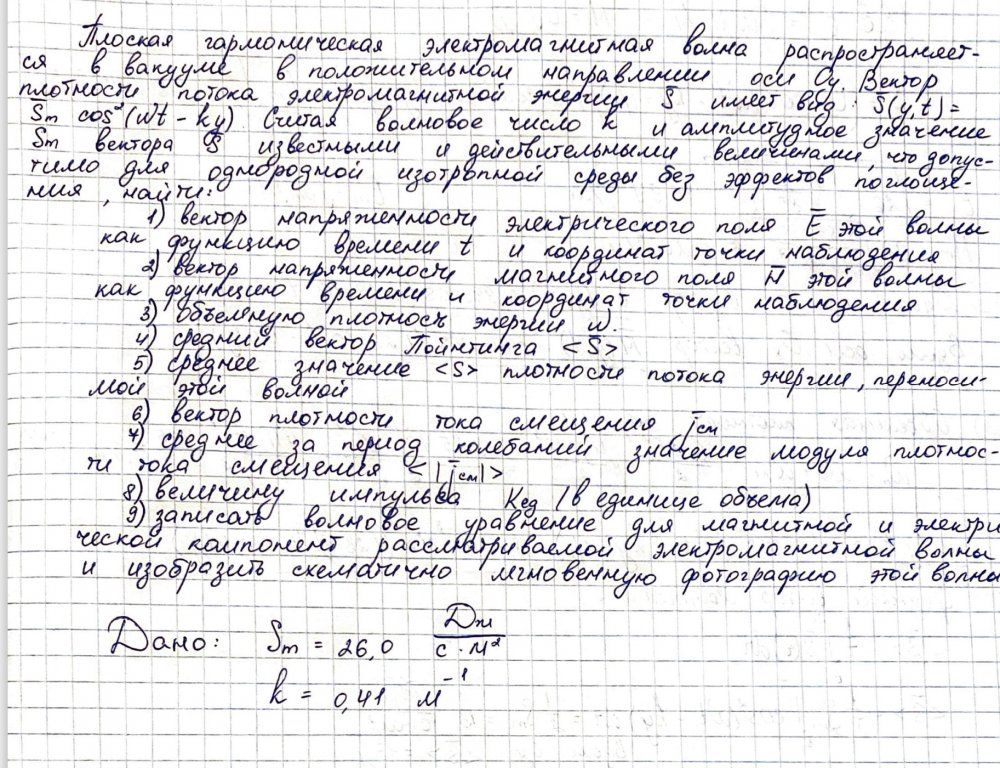 Плоская гармоническая электромагнитная волна распространяет-
ся в вакууме в положительном направлении оси Oy. Вектор
плотности потока электромагнитной энергии S̄ имеет вид: S̄(y,t)=
S̄m cos²(ωt - ky). Считая волновое число k и амплитудное значение
Sm вектора S̄ известными и действительными величинами, что допус-
тимо для однородной изотропной среды без эффектов поглоще-
ния, найти:
1) вектор напряженности электрического поля Ē этой волны
как функцию времени t и координат точки наблюдения
2) вектор напряженности магнитного поля H̄ этой волны
как функцию времени и координат точки наблюдения
3) объемную плотность энергии ω.
4) средний вектор Пойнтинга <S̄>
5) среднее значение <S> плотности потока энергии, переноси-
мой этой волной
6) вектор плотности тока смещения j̄см
7) среднее за период колебаний значение модуля плотнос-
ти тока смещения <|j̄см|>
8) величину импульса Kед (в единице объема)
9) записать волновое уравнение для магнитной и электри
ческой компонент рассматриваемой электромагнитной волны
и изобразить схематично мгновенную фотографию этой волны
Дано: Sm = 26,0 Дж/с·м²
k = 0,41 м⁻¹